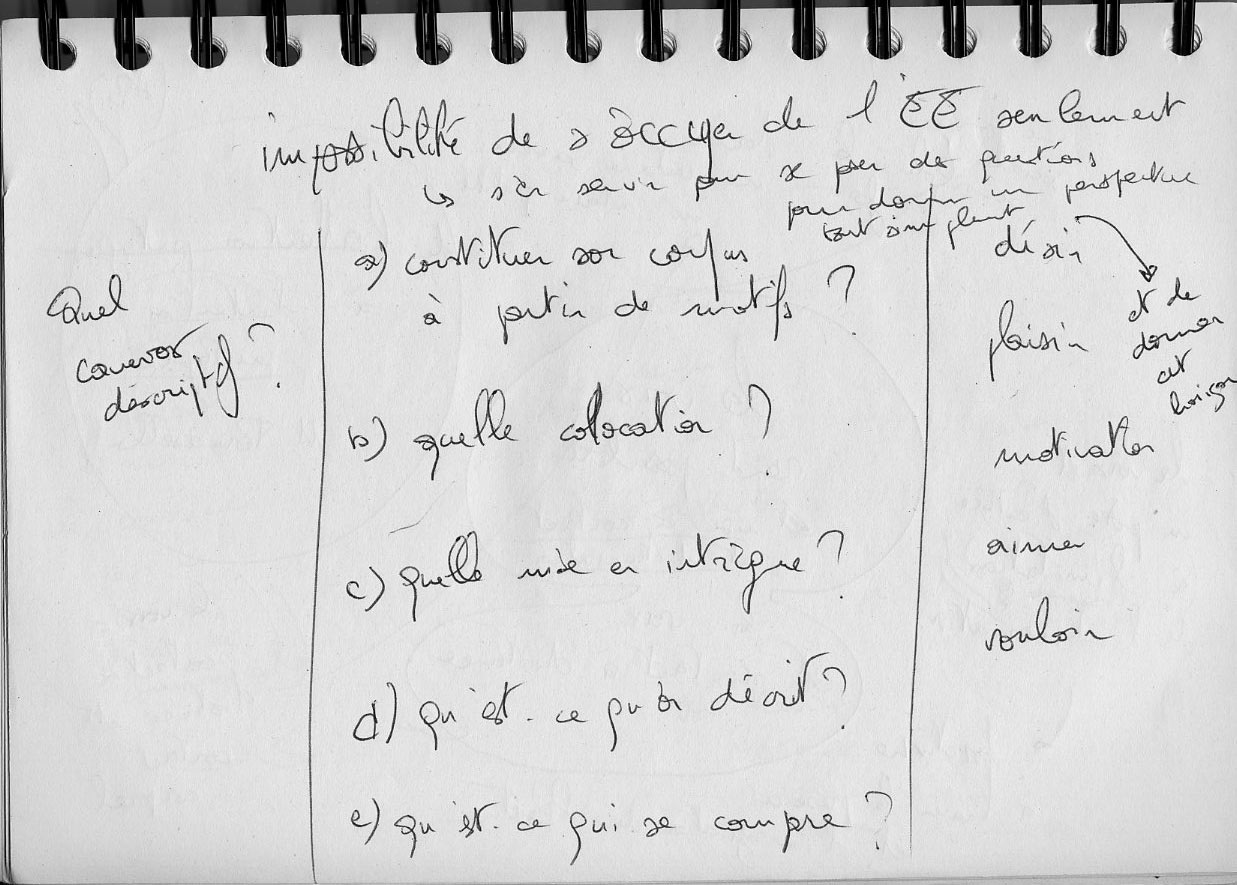 impossibilité de s'occuper de l'EE seulement
↳ s'en servir pour se poser des questions
pour donner une perspective
tout simplement
Quel
canevas
descriptif ?
a) constituer son corpus
à partir de motifs ?
b) quelle colocation ?
c) quelle mise en intrigue ?
d) qu'est-ce qu'on décrit ?
e) qu'est-ce qui se compare ?
désir
et de
donner
cet
horizon
plaisir
motivation
aimer
vouloir